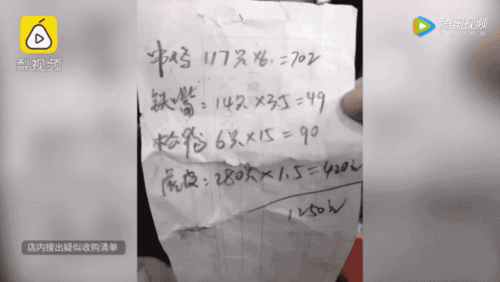 梨视频
腾讯视频
117只×6=702
14只×3.5=49
6只×15=90
皮:280只×1.5=420元
1250元
店内搜出疑似收购清单